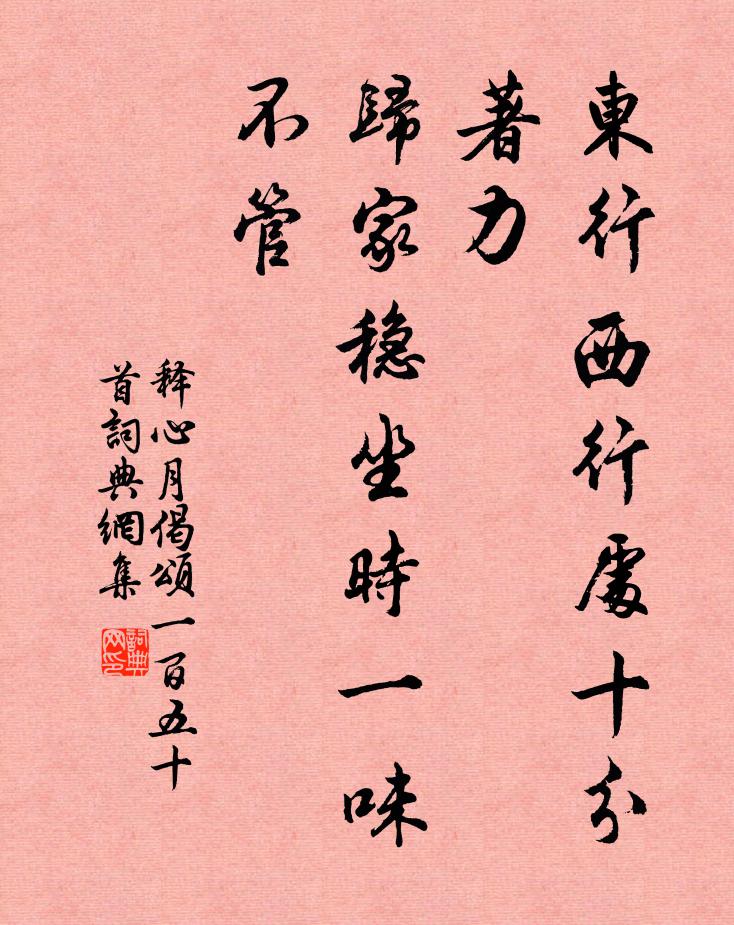 東行西行處十分
著力
歸家穏坐時一味
不管
释心月偈頌一百五十
首詞典網集
詞典
网印